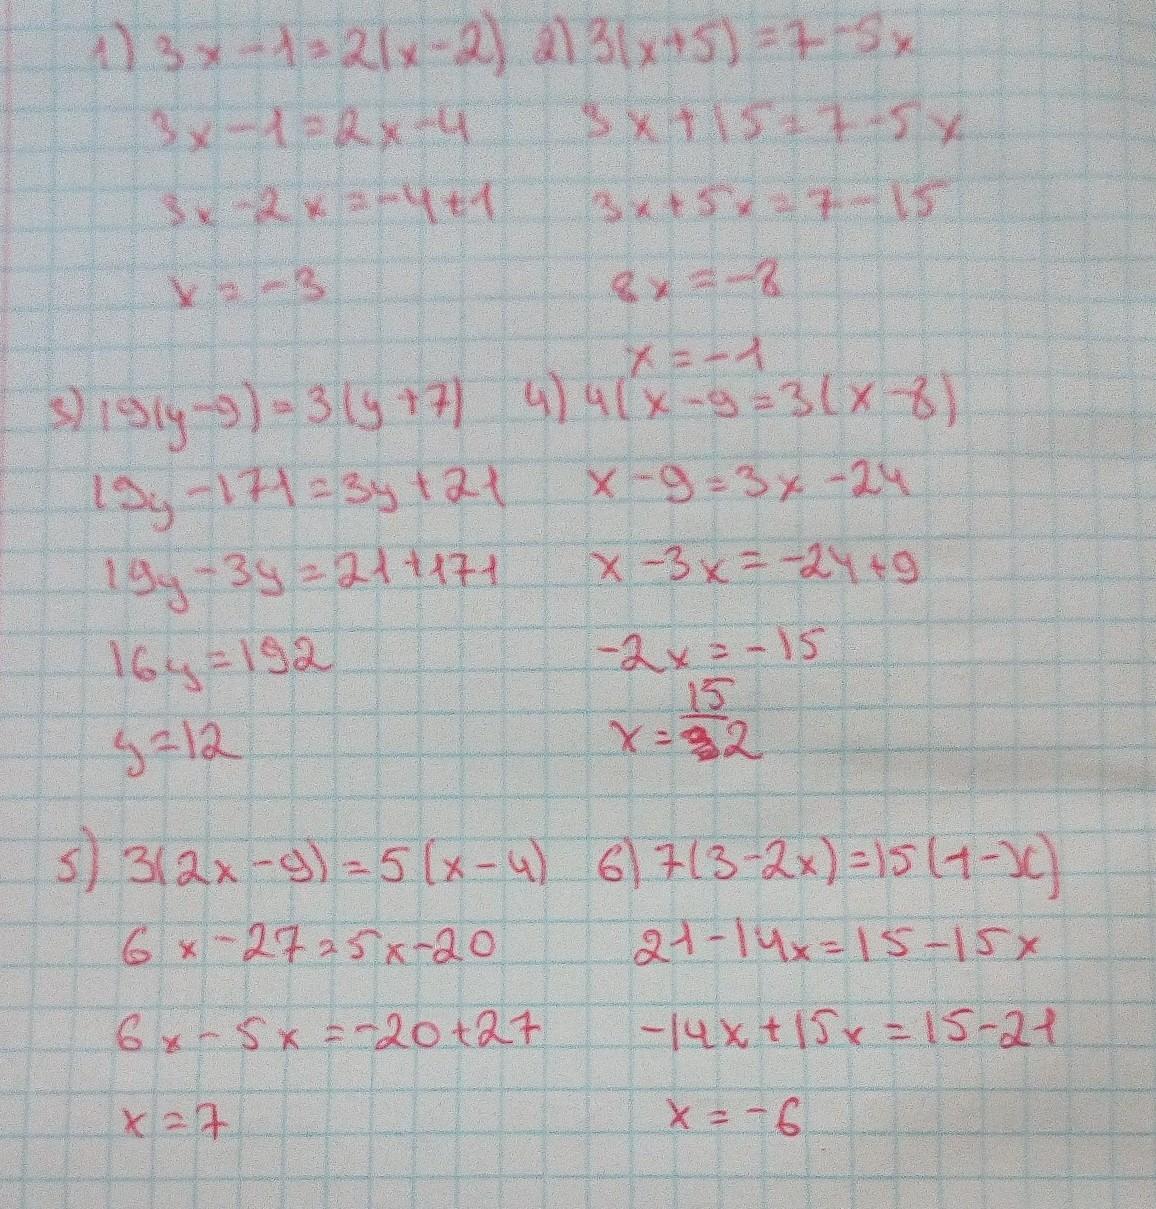 1) 3x-1=2(x-2)
3x-1=2x-4
3x-2x=-4+1
x=-3
2) 3(x+5)=7-5x
3x+15=7-5x
3x+5x=7-15
8x=-8
x=-1
3) 19(y-9)=3(y+7)
19y-171=3y+21
19y-3y=21+171
16y=192
y=12
4) 4(x-9=3(x-8)
x-9=3x-24
x-3x=-24+9
-2x=-15
x=15/2
5) 3(2x-9)=5(x-4)
6x-27=5x-20
6x-5x=-20+27
x=7
6) 7(3-2x)=15(1-x)
21-14x=15-15x
-14x+15x=15-21
x=-6